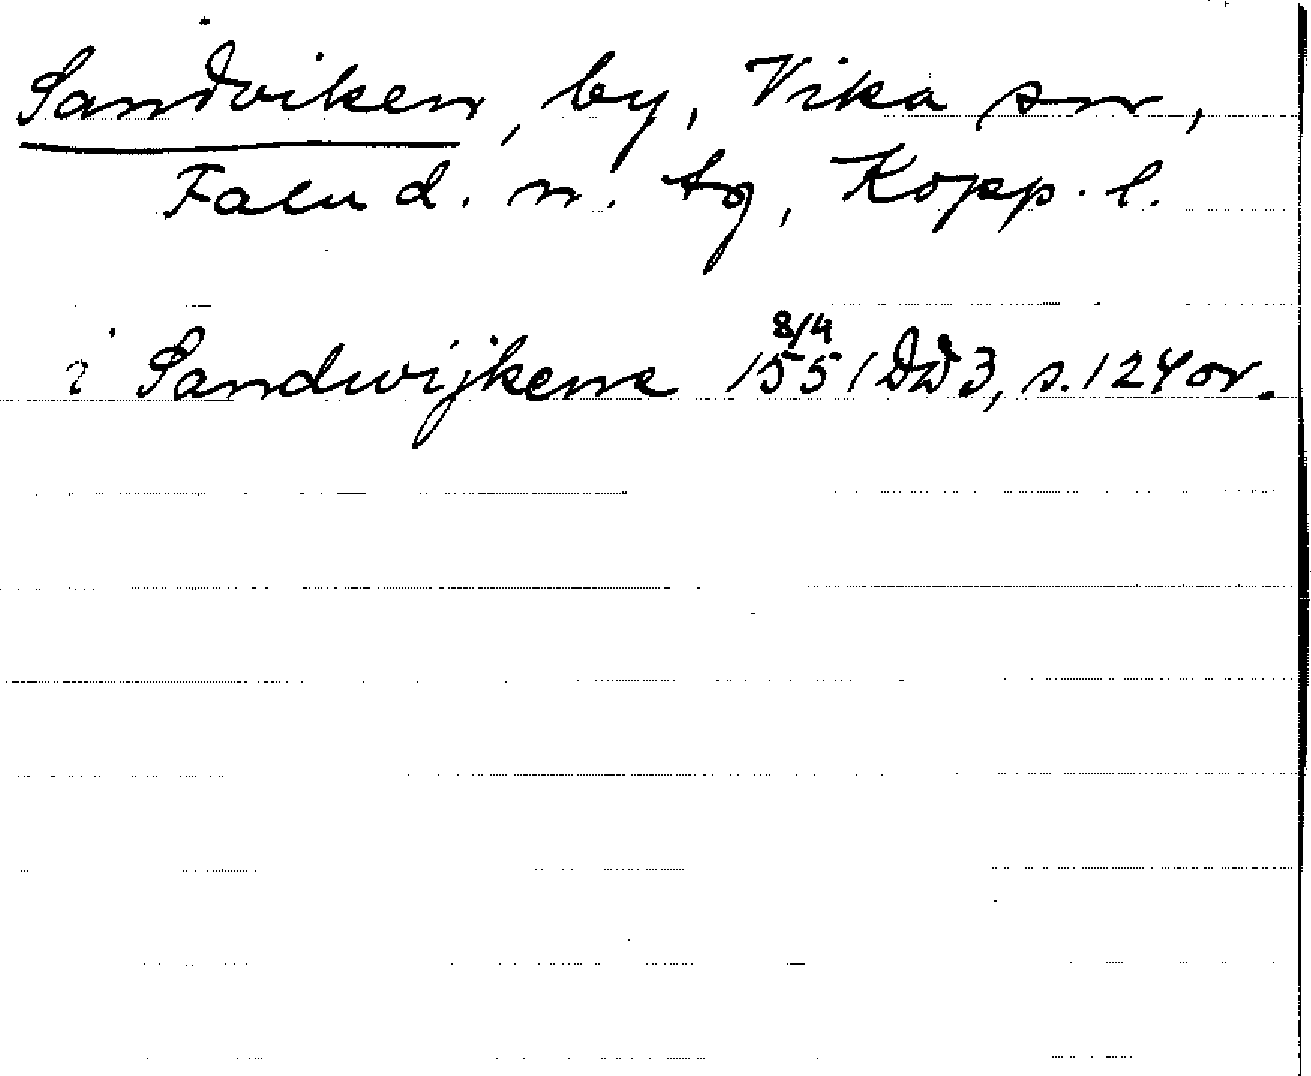 Sandviken, by, Vika sn,
Falu d. n. tg, Kopp. l.
i Sandwijkene 1551 8/4 DD 3, s. 124 or.